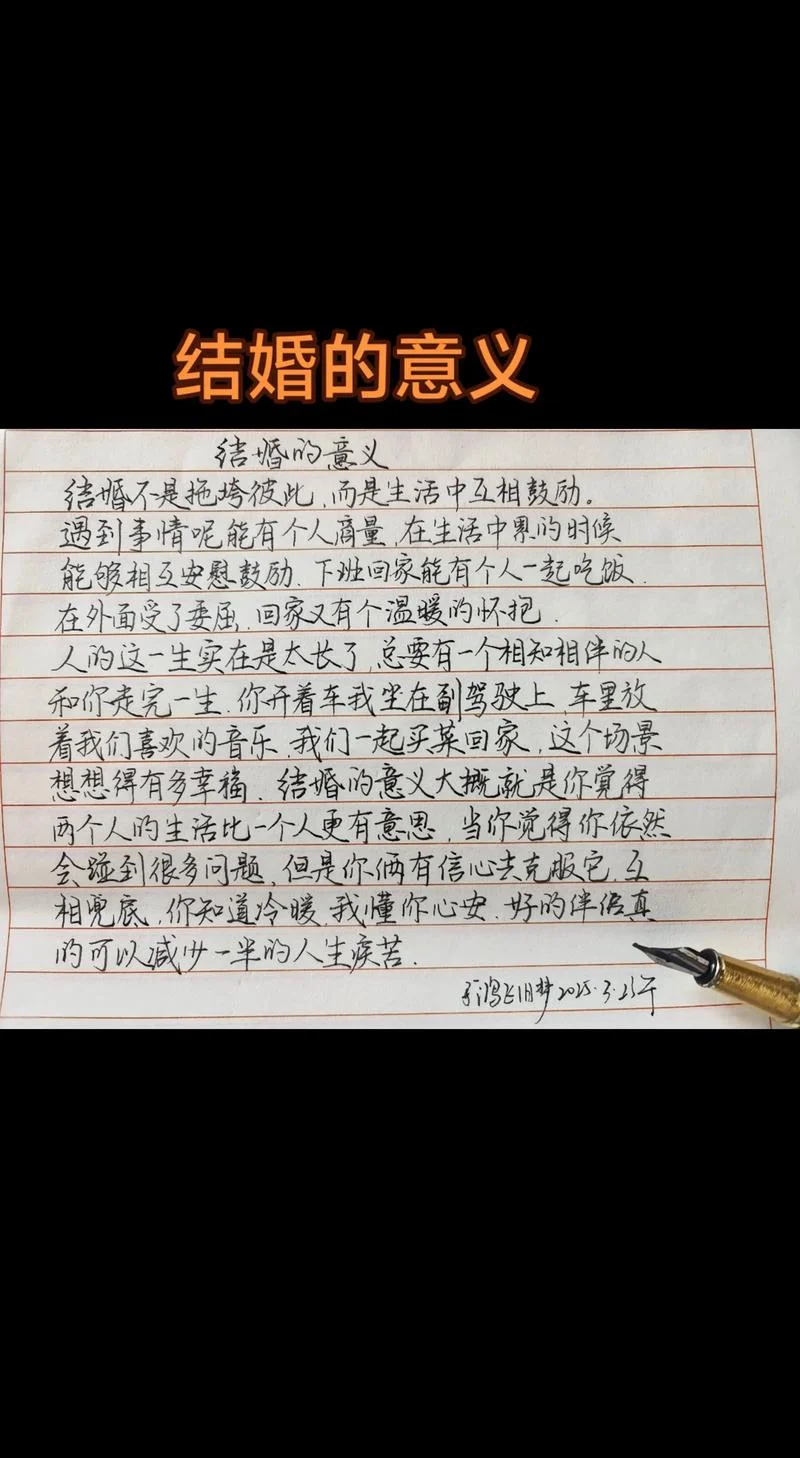 结婚的意义
结婚的意义
结婚不是拖垮彼此,而是生活中互相鼓励。
遇到事情呢能有个人商量,在生活中累的时候
能够相互安慰鼓励.下班回家能有个人一起吃饭.
在外面受了委屈,回家又有个温暖的怀抱.
人的这一生实在是太长了,总要有一个相知相伴的人
和你走完一生.你开着车我坐在副驾驶上,车里放
着我们喜欢的音乐,我们一起买菜回家,这个场景
想想得有多幸福.结婚的意义大概就是你觉得
两个人的生活比一个人更有意思,当你觉得你依然
会碰到很多问题,但是你俩有信心去克服它,互
相兜底,你知道冷暖,我懂你心安.好的伴侣真
的可以减少一半的人生疾苦.
2025.3.23午